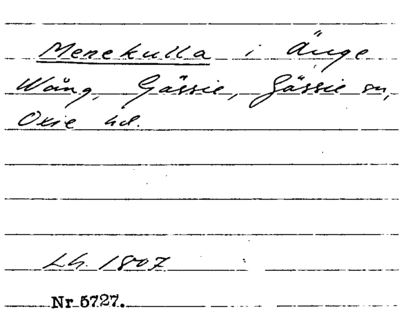 Merekulla i Änge
Wång, Gässie, Gässie sn,
Oxie hd.
Lh. 1807
Nr 5727.